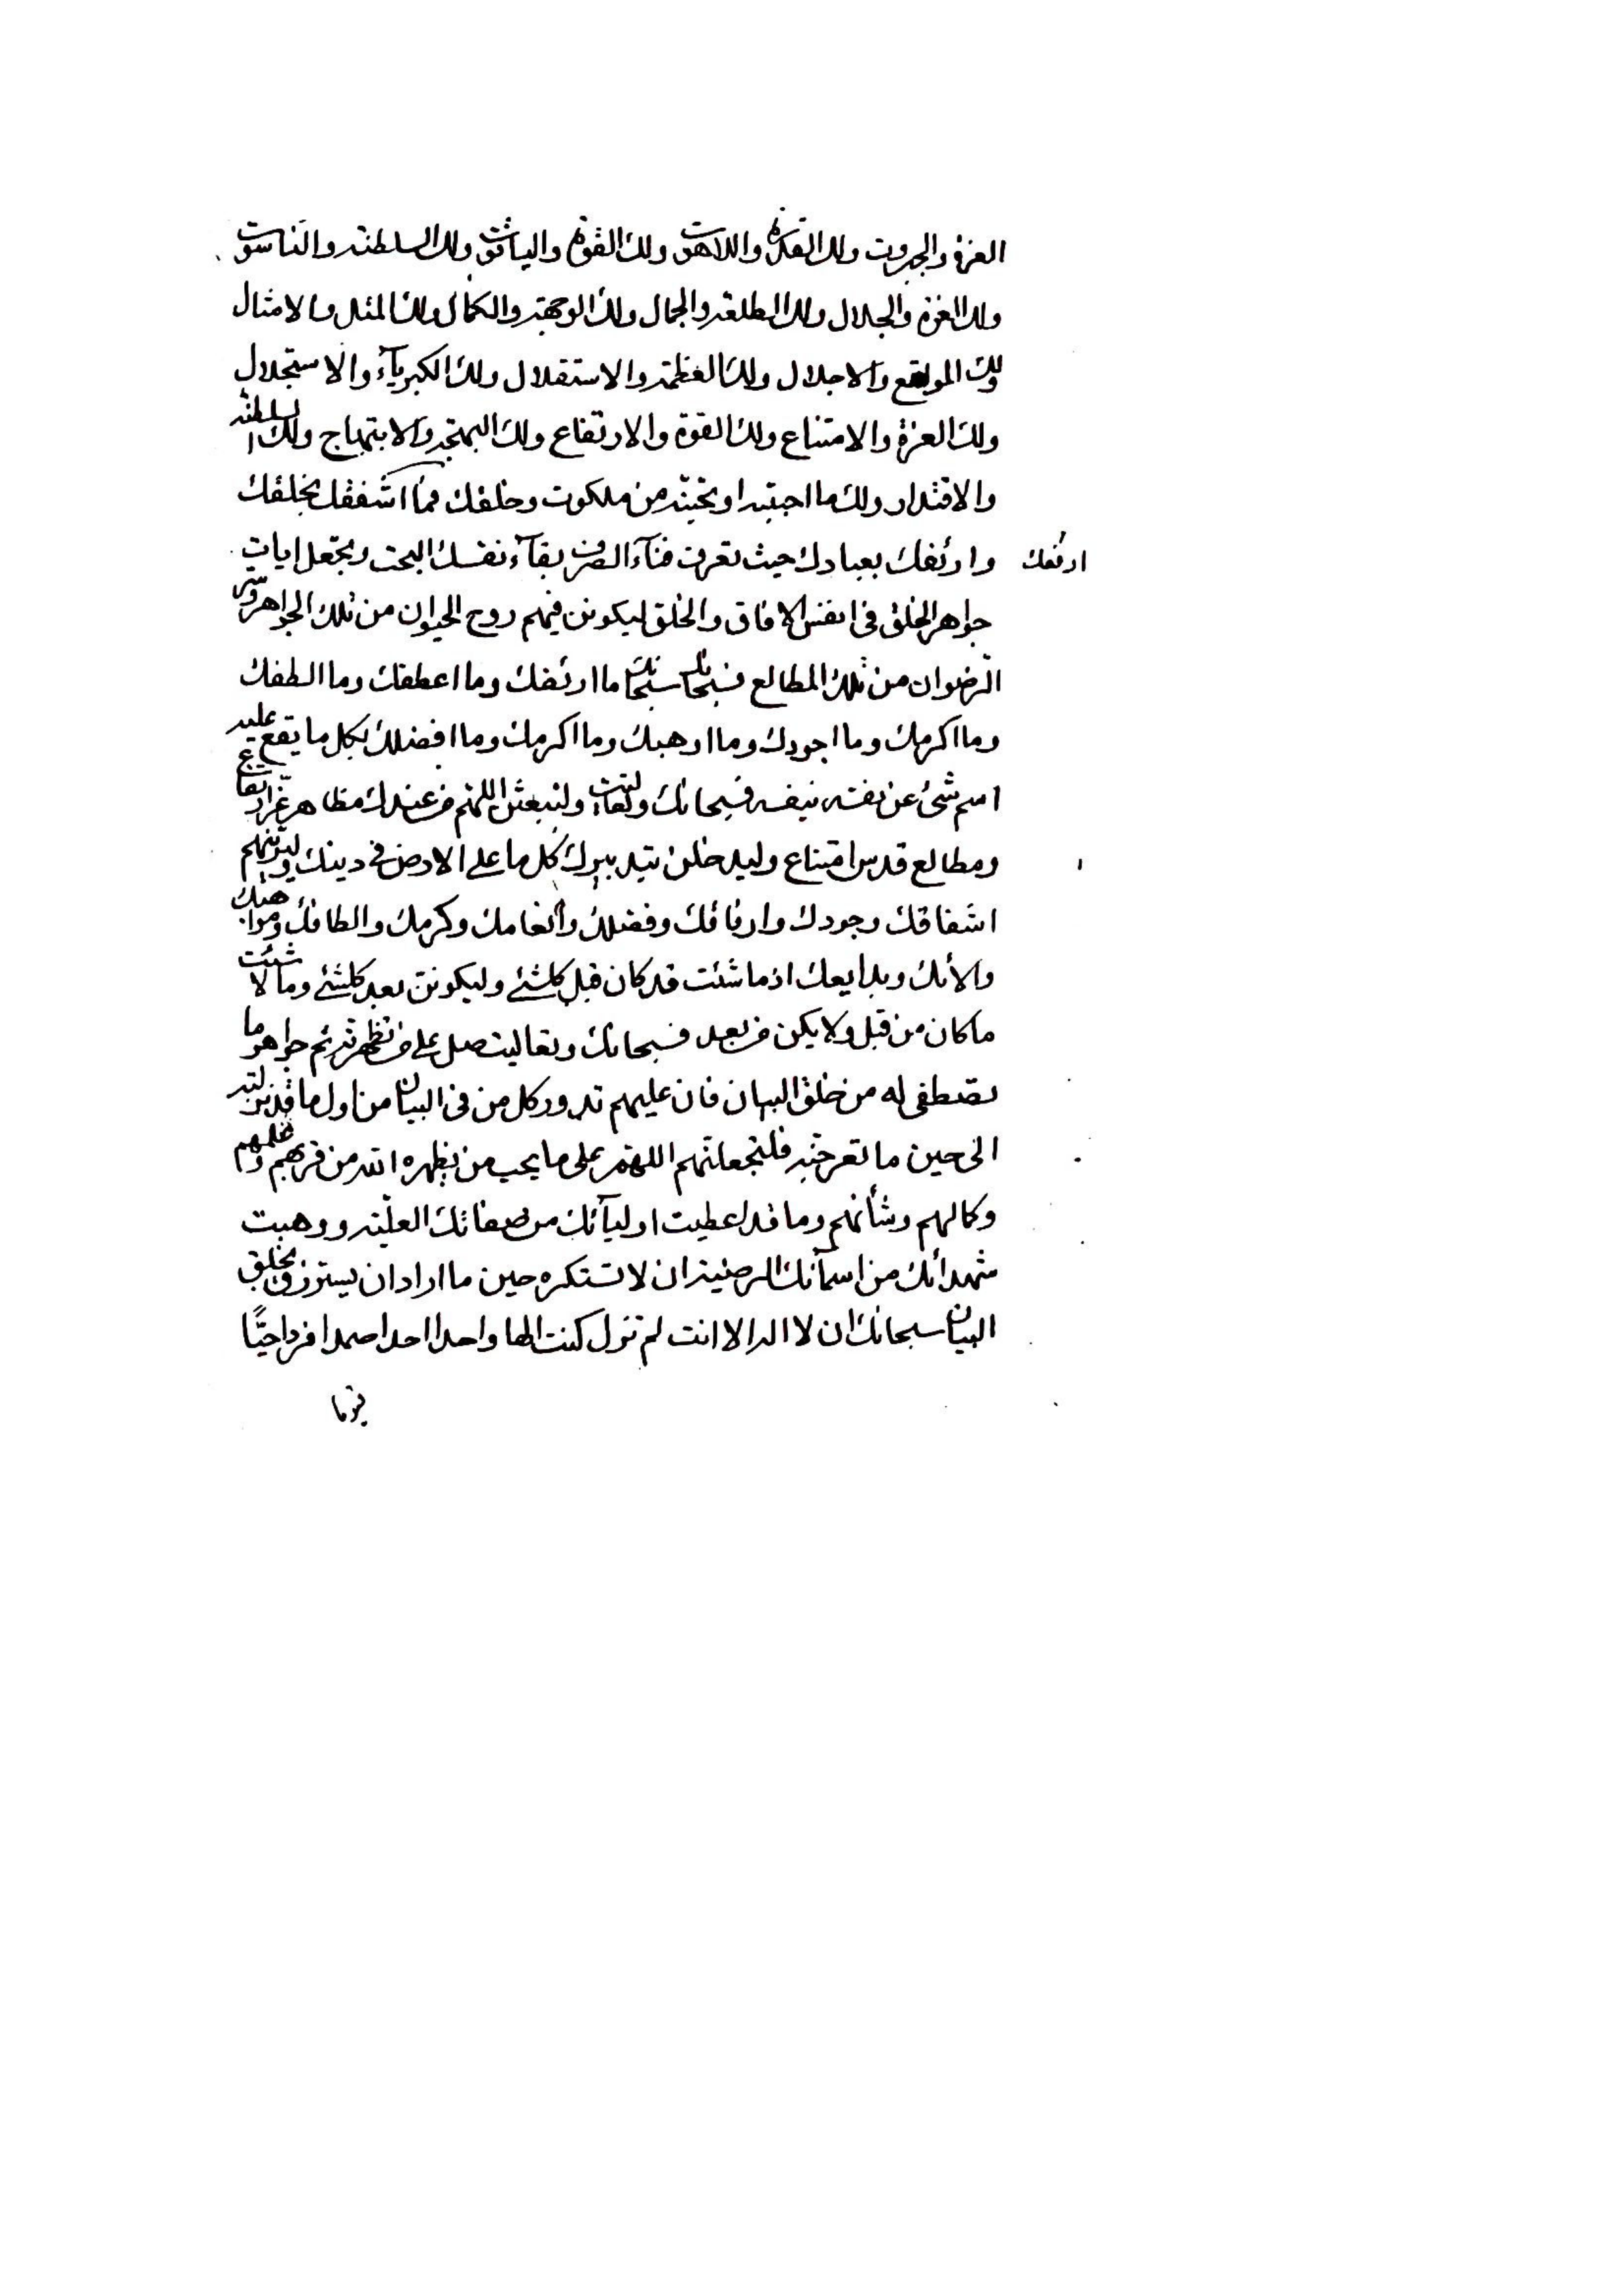 العزة والجبروت ولك القدرة واللاهوت ولك القوة والياقوت ولك السلطنة والناسوت
ولك العزة والجلال ولك الطلعة والجمال ولك الوجهة والكمال ولك المثل والامثال
ولك المواقع والاجلال ولك العظمة والاستقلال ولك الكبريآء والاستجلال
ولك العزة والامتناع ولك القوة والارتفاع ولك البهجة والابتهاج ولك السلطنة
والاقتدار ولك ما احببته او تحبنه من ملكوت وخلقك فما اشفقك بخلقك
وارئفك بعبادك حيث تعرف فنآء الصرف بقآء نفسك البحت وتجعل ايات
ارئفك
جواهر الخلق فى انفس الافاق والخلق ليكونن فيهم روح الحيوان من تلك الجواهر وسر
الرضوان من تلك المطالع فسبحانك سبحانك ما ارئفك وما اعطفك وما الطفك
وما اكرمك وما اجودك وما اوهبك وما اكرمك وما افضلك بكل ما يقع عليه
اسم شئ عن نفسه بنفسه فسبحانك وتعاليت ولتبعثن اللهم من عندك مظاهر عز ارتفاع
ومطالع قدس امتناع وليدخلن بتدبيرك كل ما على الارض فى دينك وليرينهم
اشفاقك وجودك وارفائك وفضلك وانعامك وكرمك والطافك ومواهبك
والائك وبدايعك اذ ما شئت قد كان قبل كلشئ وليكونن بعد كلشئ وما لا شئت
ما كان من قبل ولا يكن من بعد فسبحانك وتعاليت صل على من تظهرنه ثم جواهر ما
تصطفى له من خلق البيان فان عليهم تدور كل من فى البيان من اول ما قد نزلته
الى حين ما تعرجنه فلتجعلنهم اللهم على ما يحب من يظهره الله من قربهم وعلمهم
وكمالهم وشأنهم وما قد اعطيت اوليآئك من صفاتك العلية ووهبت
شهدائك من اسمآئك المرضية ان لا تستكره حين ما اراد ان يسترزق بخلق
البيان سبحانك ان لا اله الا انت لم تزل كنت الها واحدا احدا صمدا فردا حيًّا
قيوما